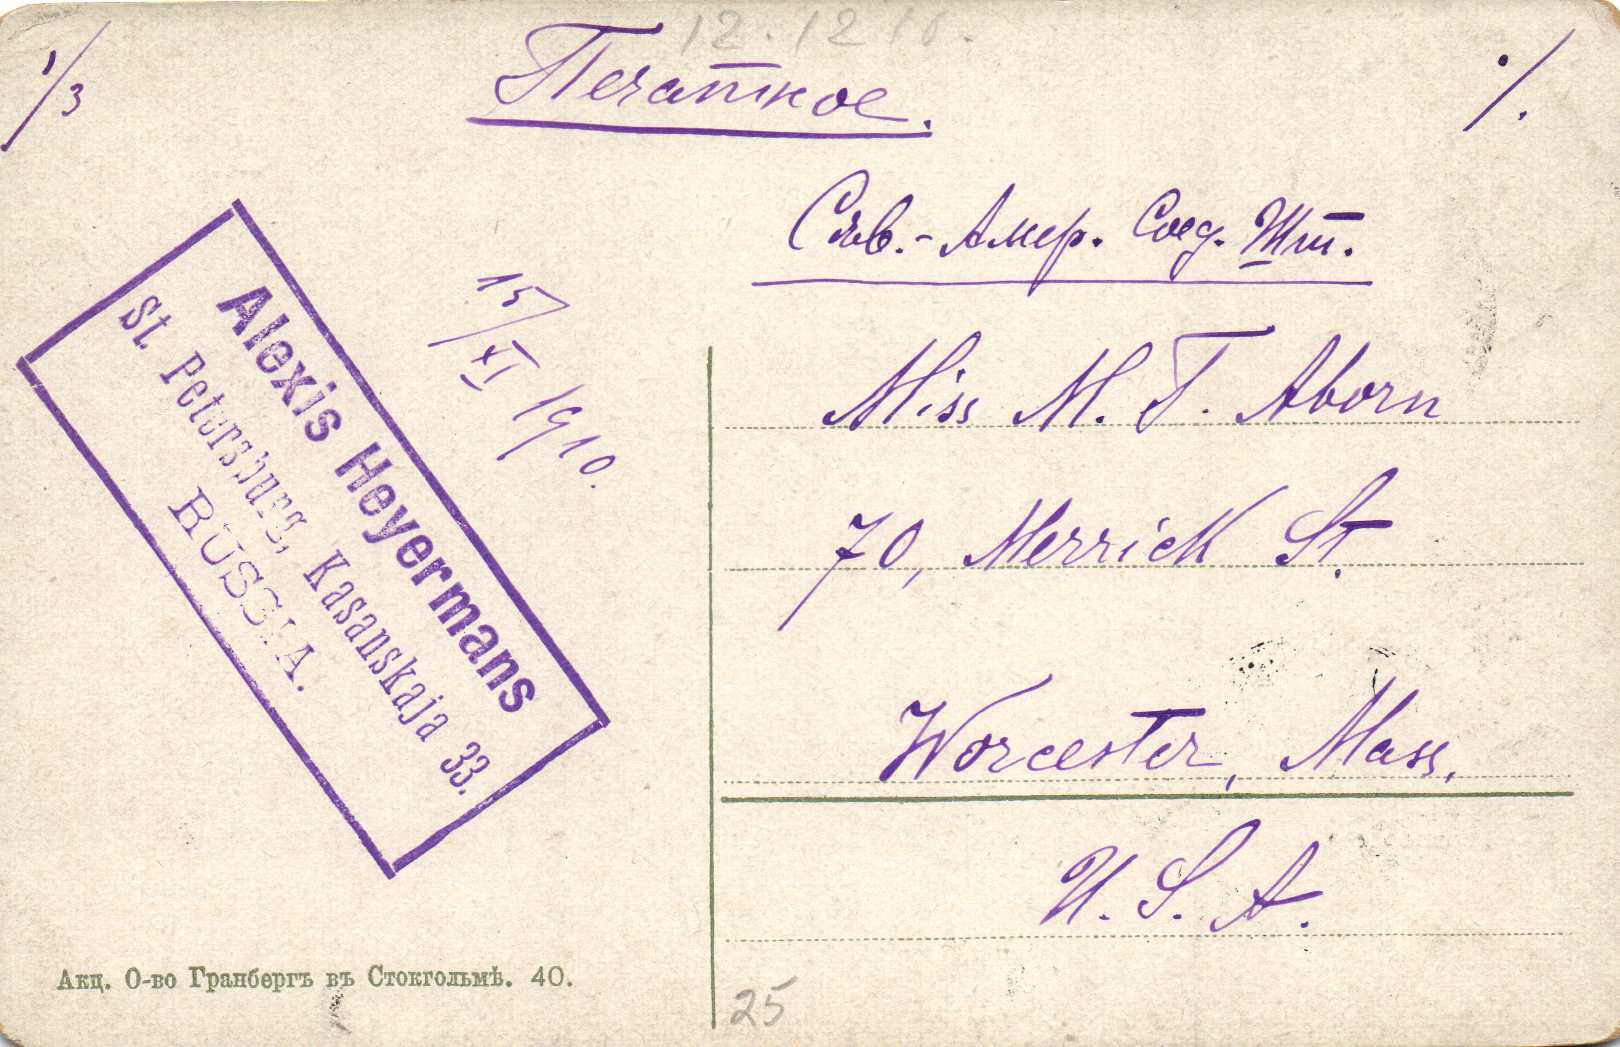 12.12.10.
1/3
Печатное.
./.
Сѣв.-Амер. Соед. Шт.
15/XI 1910.
Alexis Heyermans
St. Petersburg, Kasanskaja 33.
RUSSIA.
Miss M. T. Aborn
70, Merrick St.
Worcester, Mass.
U. S. A.
Акц. О-во Гранбергъ въ Стокгольмѣ. 40.
25